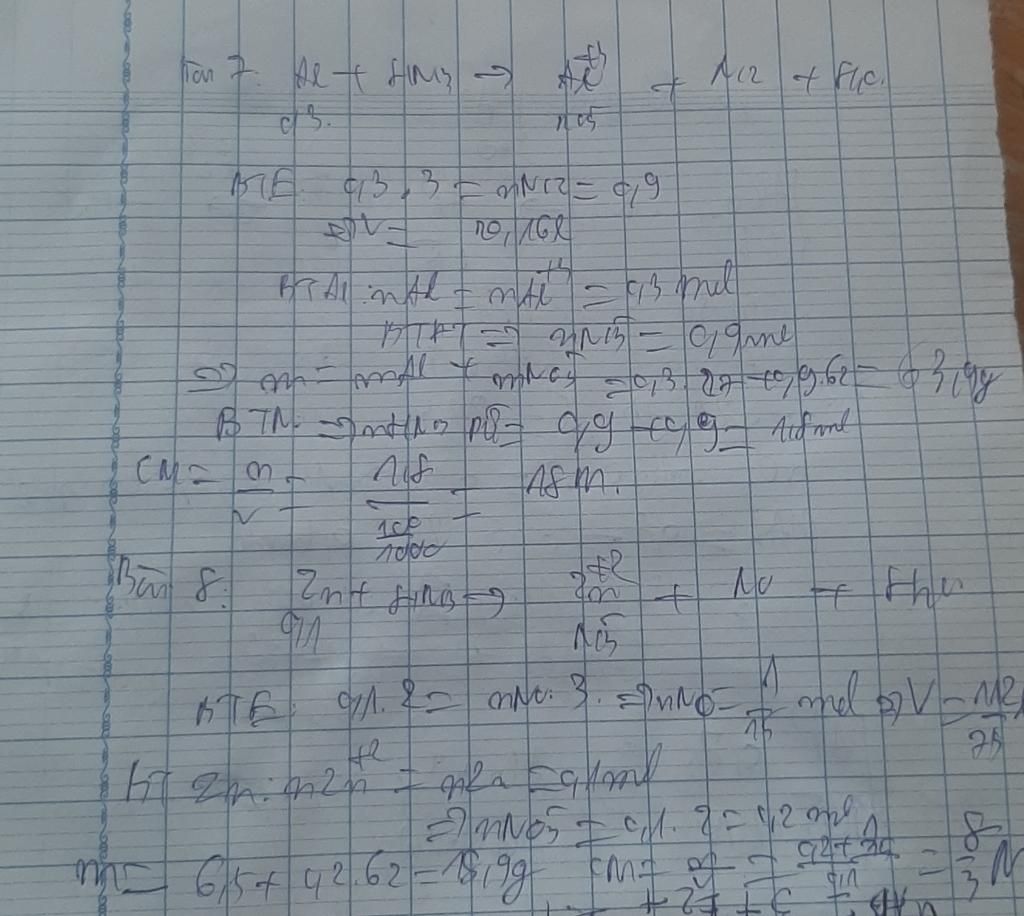 Bài 7: Al + HNO3 → Al+3 + NO2 + H2O
0,3. NO3-
BTE 0,3.3 = nNO2 = 0,9
=> V = 20,16l
BTAl: nAl = nAl+3 = 0,3 mol
BTĐT => nNO3- = 0,9 mol
=> m = mAl + mNO3- = 0,3.27 + 0,9.62 = 63,9g
BTN: => nHNO3 pứ = 0,9 + 0,9 = 1,8 mol
CM = n/V = 1,8/(100/1000) = 18M.
Bài 8: Zn + HNO3 → Zn+2 + NO + H2O
0,1 NO3-
BTE: 0,1.2 = nNO.3. => nNO = 1/15 mol => V = 112/75
BT Zn: nZn+2 = nZn = 0,1 mol
=> nNO3- = 0,1.2 = 0,2 mol
m = 6,5 + 0,2.62 = 18,9g CM = = = 8/3 M